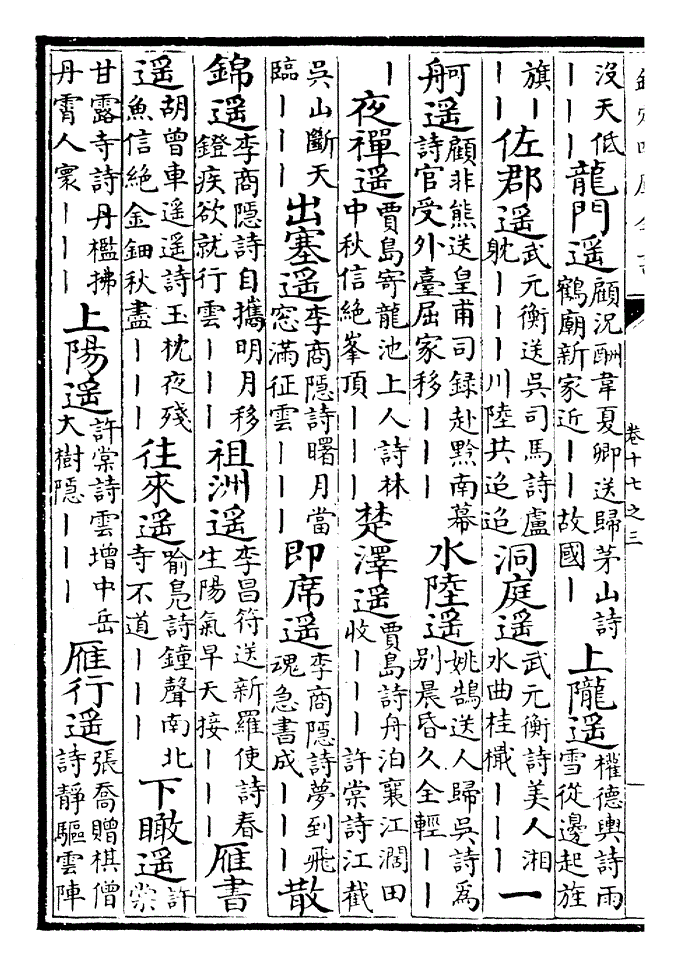 欽定四庫全書
卷十七之三
沒天低｜｜｜龍門遥顧況酬韋夏卿送歸茅山詩鶴廟新家近｜｜故國｜上隴遥權德輿詩雨雪從邊起旌
旗｜｜｜佐郡遥武元衡送吳司馬詩盧躭｜｜｜川陸共迢迢洞庭遥武元衡詩美人湘水曲桂檝｜｜｜一
舸遥顧非熊送皇甫司録赴黔南幕詩官受外臺屈家移｜｜｜水陸遥姚鵠送人歸吳詩為别晨昏久全輕｜｜
｜夜禪遥賈島寄龍池上人詩林中秋信絶峯頂｜｜｜楚澤遥賈島詩舟泊襄江濶田收｜｜｜許棠詩江截
吳山斷天臨｜｜｜出塞遥李商隱詩曙月當窓滿征雲｜｜｜即席遥李商隱詩夢到飛魂急書成｜｜｜散
錦遥李商隱詩自攜明月移鐙疾欲就行雲｜｜｜祖洲遥李昌符送新羅使詩春生陽氣早天接｜｜｜雁書
遥胡曾車遥遥詩玉枕夜殘魚信絶金鈿秋盡｜｜｜往來遥喻鳧詩鐘聲南北寺不道｜｜｜下瞰遥許棠
甘露寺詩丹檻拂丹霄人寰｜｜｜上陽遥許棠詩雲增中岳大樹隱｜｜｜雁行遥張喬贈棋僧詩靜驅雲陣